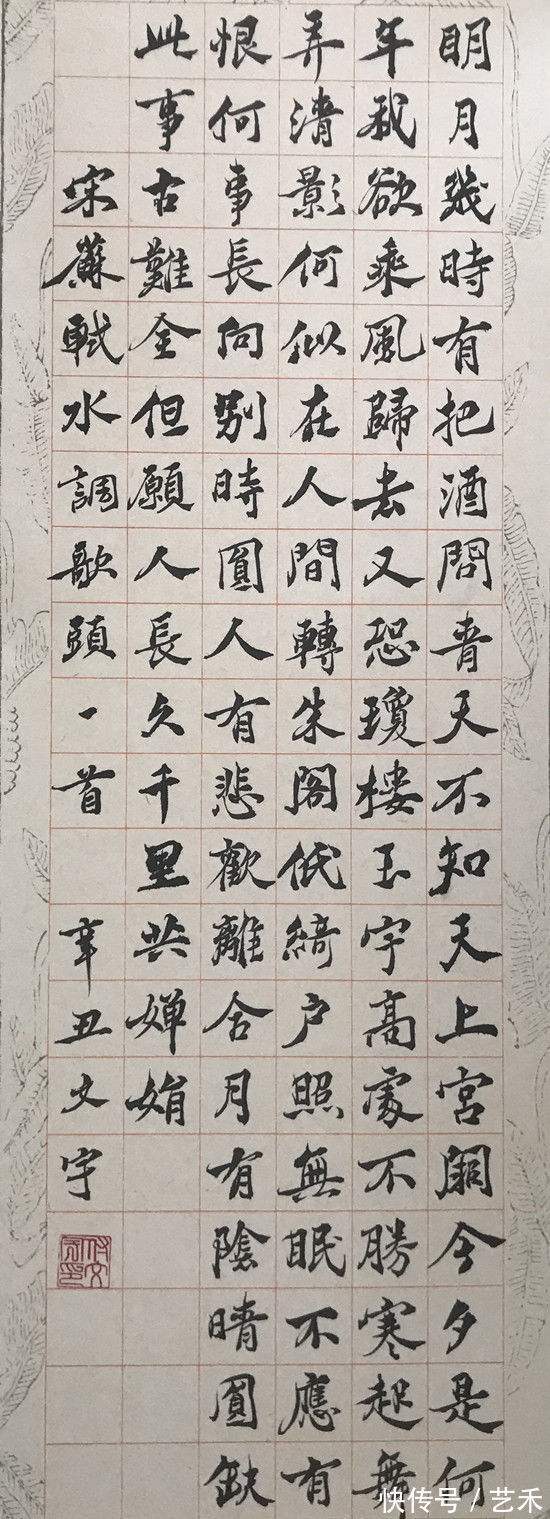 明月幾時有把酒問青天不知天上宮闕今夕是何
年我欲乘風歸去又恐瓊樓玉宇高處不勝寒起舞
弄清影何似在人間轉朱閣低綺户照無眠不應有
恨何事長向别時圓人有悲歡離合月有陰晴圓缺
此事古難全但願人長久千里共嬋娟
宋蘇軾水調歌頭一首 辛丑文宇
快传号 / 艺禾